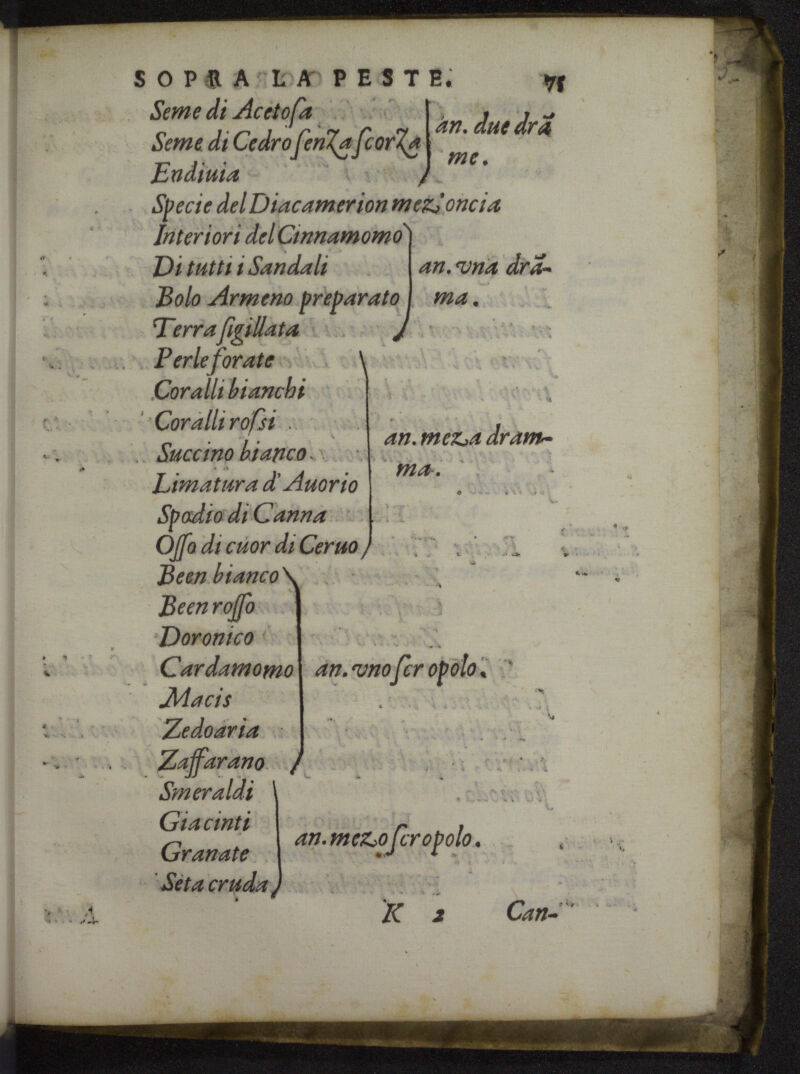 SOPRA LA PESTE. 75
Seme di Acetoſa
Seme di Cedro ſenza ſcorza
Endiuia
an. due drã
me.
Specie del Diacamerion mez' oncia
Interiori del Cinnamomo
Di tutti i Sandali
Bolo Armeno preparato
Terra ſigillata
an. vna drã-
ma.
Perle forate
Coralli bianchi
Coralli roſsi
Succino bianco
Limatura d'Auorio
Spodio di Canna
Oſſo di cuor di Ceruo
an. meza dram-
ma.
Been bianco
Been roſſo
Doronico
Cardamomo
Macis
Zedoaria
Zaffarano
an. vno ſcropolo.
Smeraldi
Giacinti
Granate
Seta cruda
an. mezo ſcropolo.
K 2 Can-